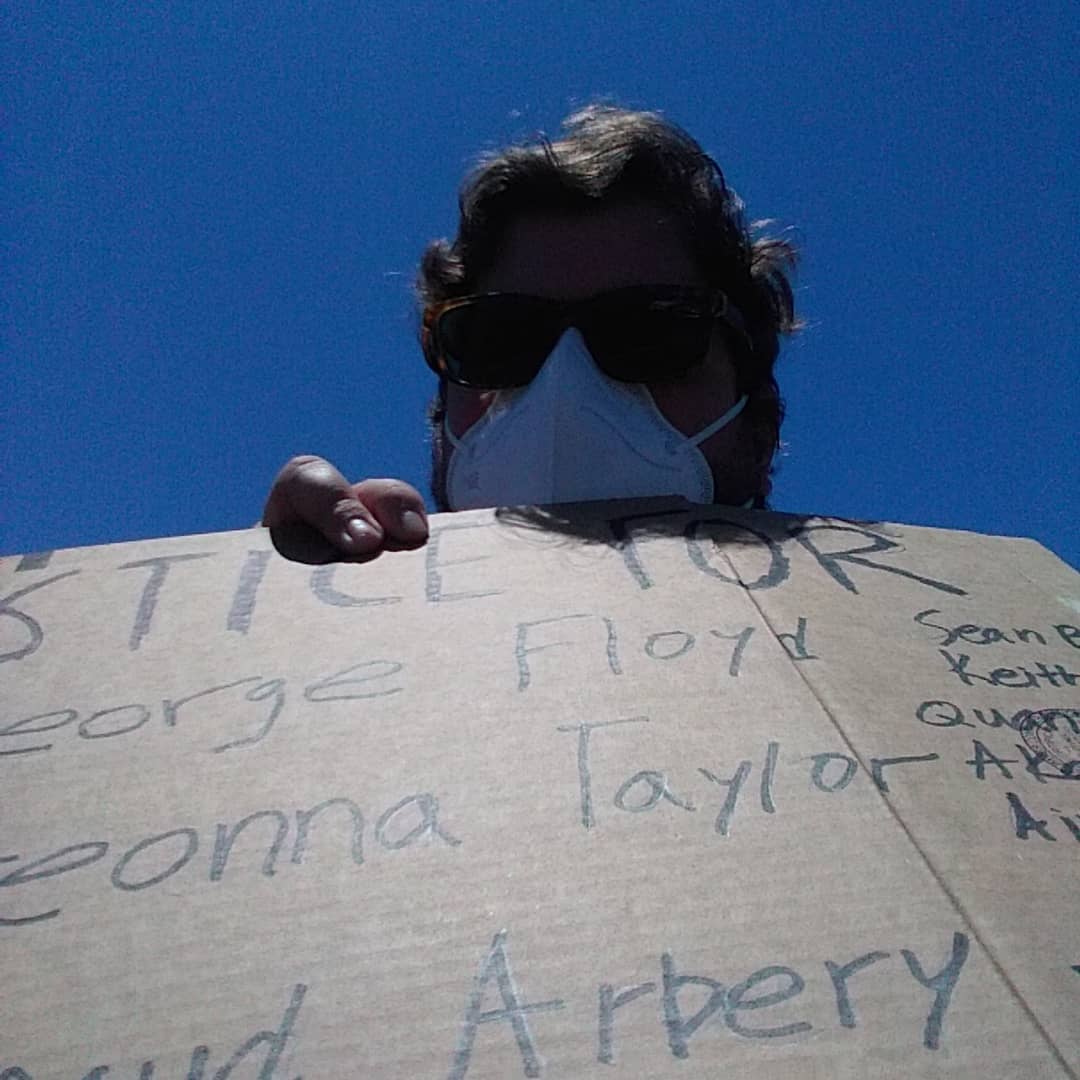 STICE FOR
eorge Floyd
eonna Taylor
aud Arbery
Sean
Keith
Quan